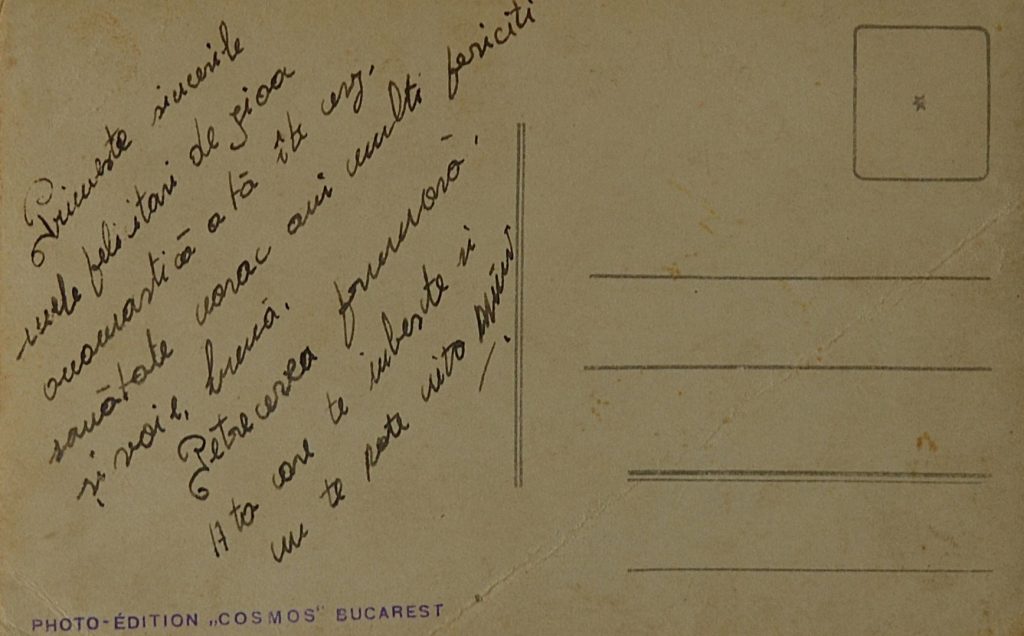 Primeste sincerile
mele felicitari de zioa
onomastică a tă îti urez.
sanătate noroc ani multi fericiti
și voie, bună.
Petrecerea frumoasă.
A ta care te iubeste si
nu te poate uita
PHOTO-ÉDITION „COSMOS" BUCAREST